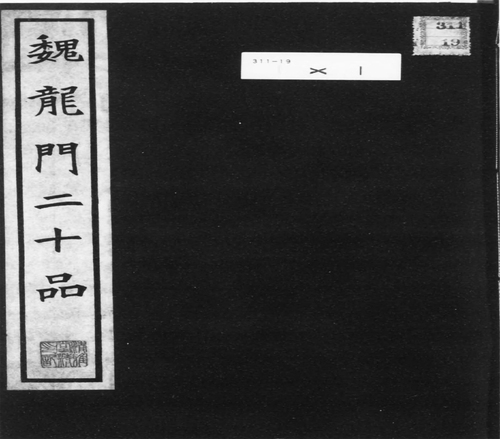 魏龍門二十品
311-19
311
19